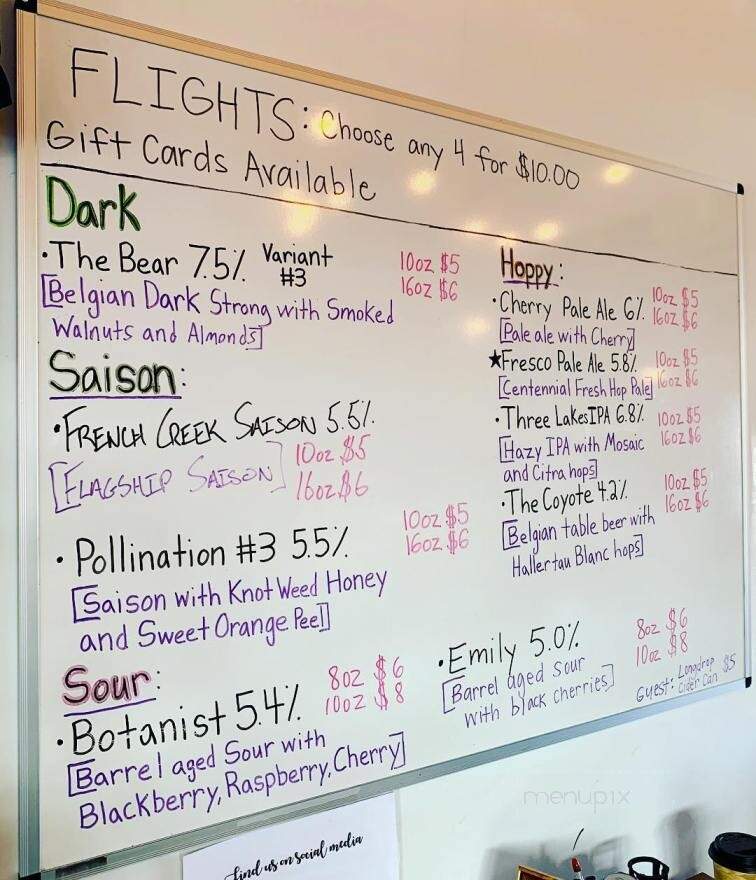 FLIGHTS: Choose any 4 for $10.00
Gift Cards Available
Dark
·The Bear 7.5% Variant #3
10oz $5
16oz $6
[Belgian Dark Strong with Smoked
Walnuts and Almonds]
Saison:
·FRENCH CREEK SAISON 5.5%
[FLAGSHIP SAISON]
10oz $5
16oz $6
·Pollination #3 5.5%
10oz $5
16oz $6
[Saison with Knot Weed Honey
and Sweet Orange Peel]
Sour:
·Botanist 5.4%
8oz $6
10oz $8
[Barrel aged Sour with
Blackberry, Raspberry, Cherry]
Hoppy:
·Cherry Pale Ale 6%
10oz $5
16oz $6
[Pale ale with Cherry]
★Fresco Pale Ale 5.8%
10oz $5
16oz $6
[Centennial Fresh Hop Pale]
·Three Lakes IPA 6.8%
10oz $5
16oz $6
[Hazy IPA with Mosaic
and Citra hops]
·The Coyote 4.2%
10oz $5
16oz $6
[Belgian table beer with
Hallertau Blanc hops]
·Emily 5.0%
8oz $6
10oz $8
[Barrel aged sour
with black cherries]
Guest: Longdrop
Cider Can $5
menupix
find us on social media